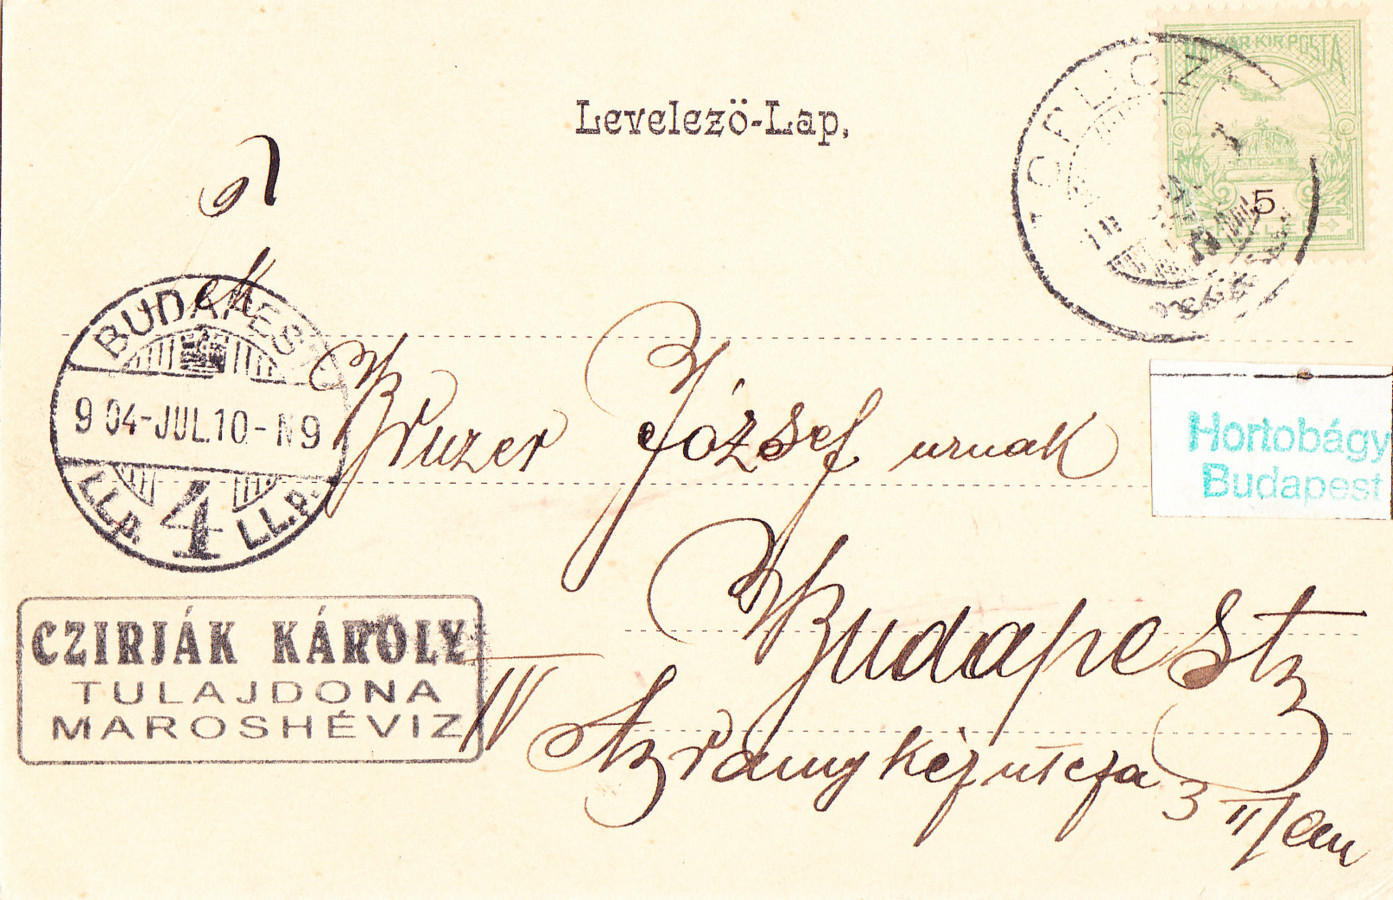 Levelező-Lap,
MAGYAR KIR. POSTA
5
TOPLICZA
BUDAPEST
904-JUL.10.-N9
4
LL.p. LL.p.
József urnak
Hortobágy
Budapest
Budapest
CZIRJÁK KÁROLY
TULAJDONA
MAROSHÉVIZ
IV Aranykéz utcza 3 II/em